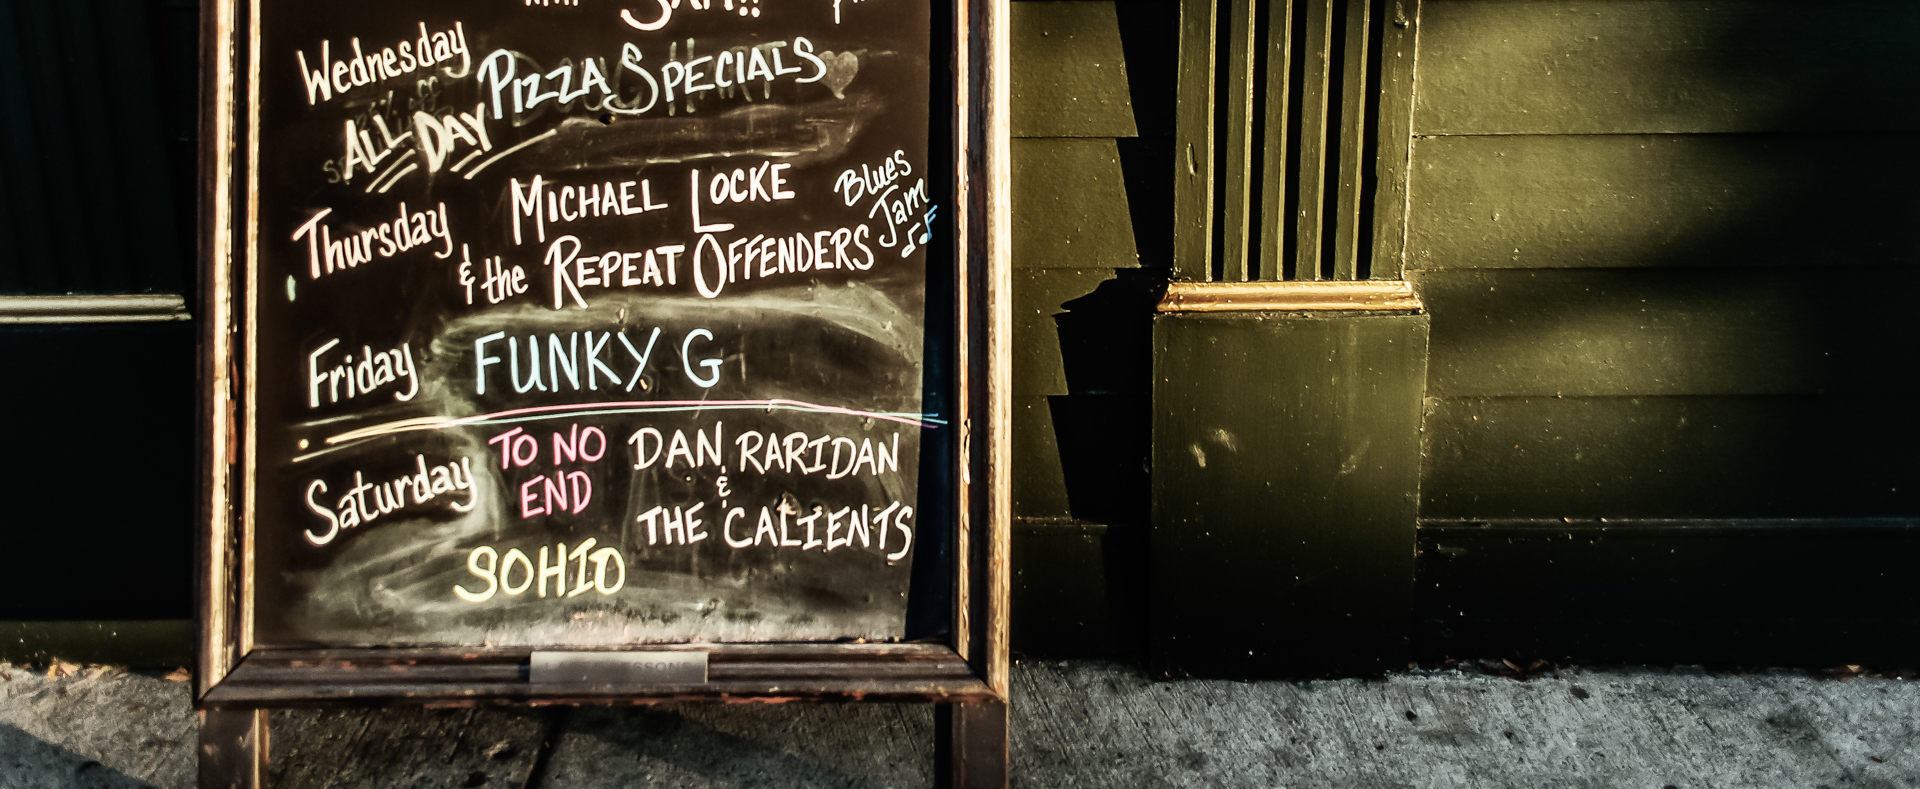 Wednesday PIZZA SPECIALS
ALL DAY
Thursday MICHAEL LOCKE
& the REPEAT OFFENDERS
Blues
Jam
Friday FUNKY G
Saturday TO NO
END
DAN RARIDAN
&
THE CALIENTS
SOHIO